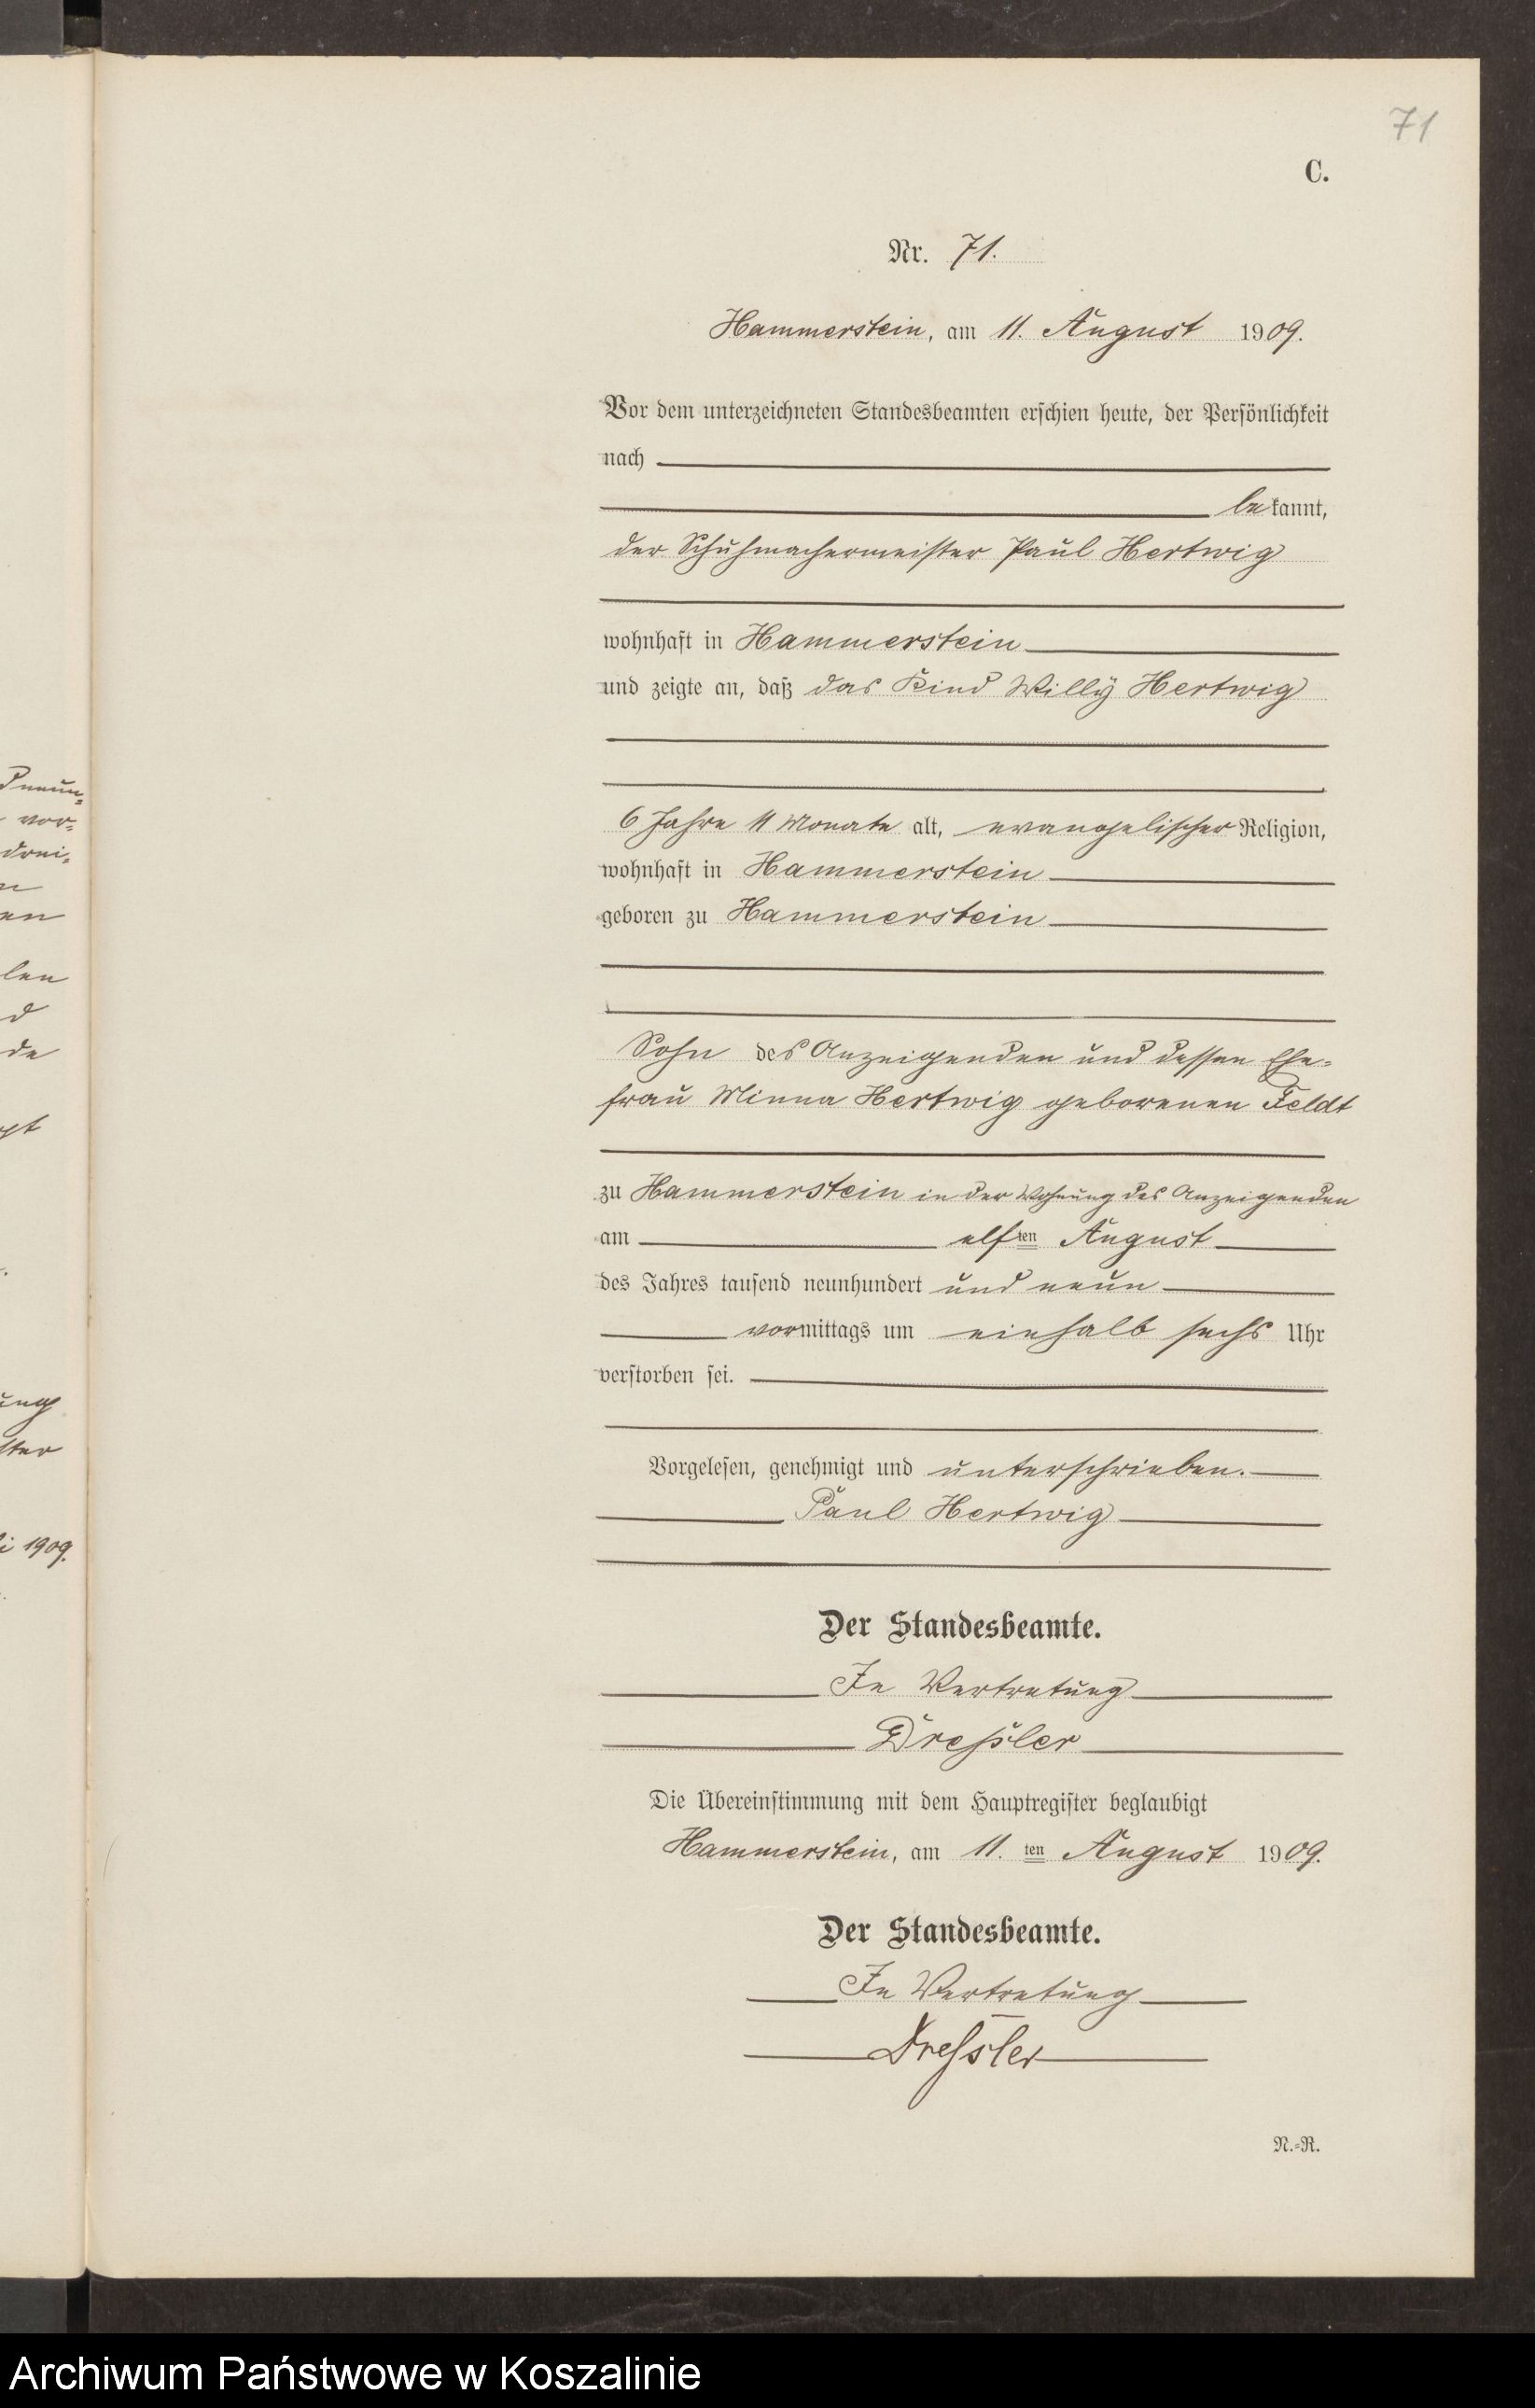 71
C.
Nr. 71.
Hammerstein, am 11. August 1909.
Vor dem unterzeichneten Standesbeamten erschien heute, der Persönlichkeit
nach
bekannt,
der Schuhmachermeister Paul Hertwig
wohnhaft in Hammerstein
und zeigte an, daß das Kind Willy Hertwig
6 Jahre 11 Monate alt, evangelischer Religion,
wohnhaft in Hammerstein
geboren zu Hammerstein
Sohn des Anzeigenden und dessen Ehe-
frau Minna Hertwig geborenen Feldt
zu Hammerstein in der Wohnung des Anzeigenden
am elften August
des Jahres tausend neunhundert und neun
vormittags um einhalb sechs Uhr
verstorben sei.
Vorgelesen, genehmigt und unterschrieben.
Paul Hertwig
Der Standesbeamte.
In Vertretung
Dreßler
Die Übereinstimmung mit dem Hauptregister beglaubigt
Hammerstein, am 11. ten August 1909.
Der Standesbeamte.
In Vertretung
Dreßler
N.-R.
vor-
drei-
len
de
i 1909.
Archiwum Państwowe w Koszalinie